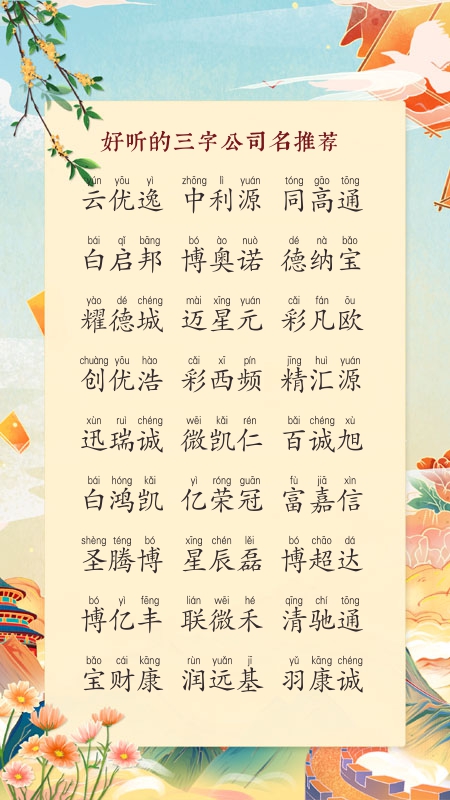 好听的三字公司名推荐
yún yōu yì zhōng lì yuán tóng gāo tōng
云优逸 中利源 同高通
bái qǐ bāng bó ào nuò dé nà bǎo
白启邦 博奥诺 德纳宝
yào dé chéng mài xīng yuán cǎi fán ōu
耀德城 迈星元 彩凡欧
chuàng yōu hào cǎi xī pín jīng huì yuán
创优浩 彩西频 精汇源
xùn ruì chéng wēi kǎi rén bǎi chéng xù
迅瑞诚 微凯仁 百诚旭
bái hóng kǎi yì róng guān fù jiā xìn
白鸿凯 亿荣冠 富嘉信
shèng téng bó xīng chén lěi bó chāo dá
圣腾博 星辰磊 博超达
bó yì fēng lián wēi hé qīng chí tōng
博亿丰 联微禾 清驰通
bǎo cái kāng rùn yuǎn jī yǔ kāng chéng
宝财康 润远基 羽康诚